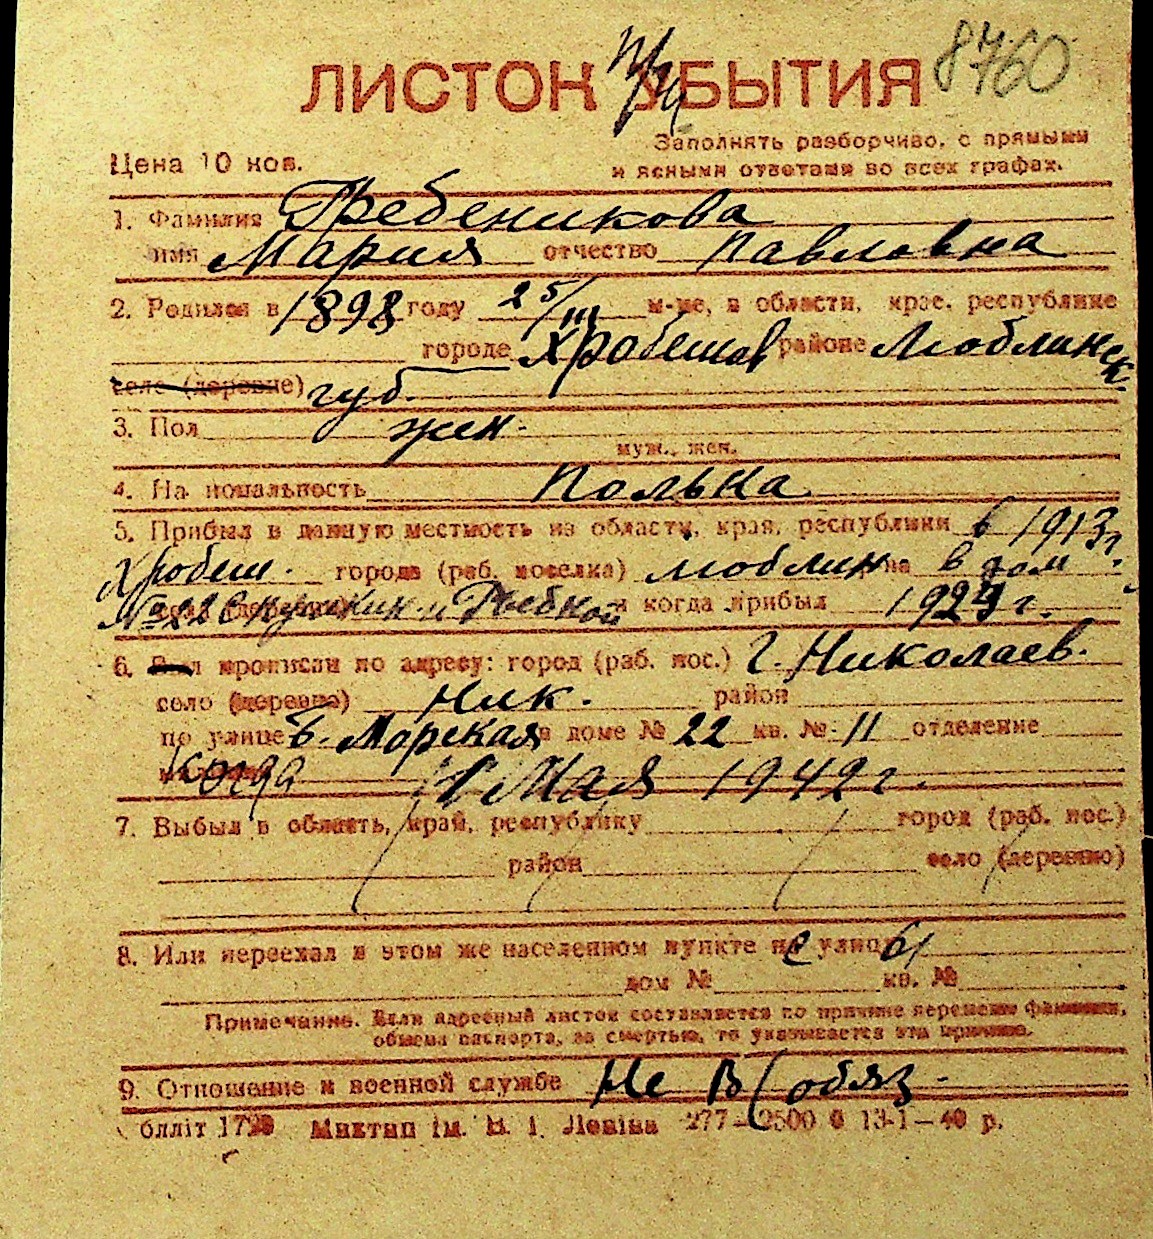 8760
ЛИСТОК УБЫТИЯ
Заполнять разборчиво, с прямыми
Цена 10 коп.
и ясными ответами во всех графах.
1. Фамилия Гребеникова
имя Мария отчество Павловна
2. Родился в 1898 году 25/III м-це, в области, крае, республике
городе Хробешов районе Люблинск.
селе (деревне) губ.
3. Пол жен.
муж., жен.
4. Национальность Полька
5. Прибыл в данную местность из области, края, республики в 1913 г.
Хробеш. города (раб. поселка) Люблин в дом
№ 22 и когда прибыл 1929 г.
6. Был прописан по адресу: город (раб. пос.) г. Николаев.
село (деревне) Ник. район
по улице Б. Морская в доме № 22 кв. № 11 отделение
Когда 1 Мая 1942 г.
7. Выбыл в область, край, республику город (раб. пос.)
район село (деревню)
8. Или переехал в этом же населенном пункте на улицу
дом № кв. №
Примечание. Если адресный листок составляется по причине перемены фамилии,
обмена паспорта, за смертью, то указывается эта причина.
9. Отношение к военной службе Не в/обяз.
блліт Миктип ім. В. І. Леніна 277—2500 13-1—40 р.